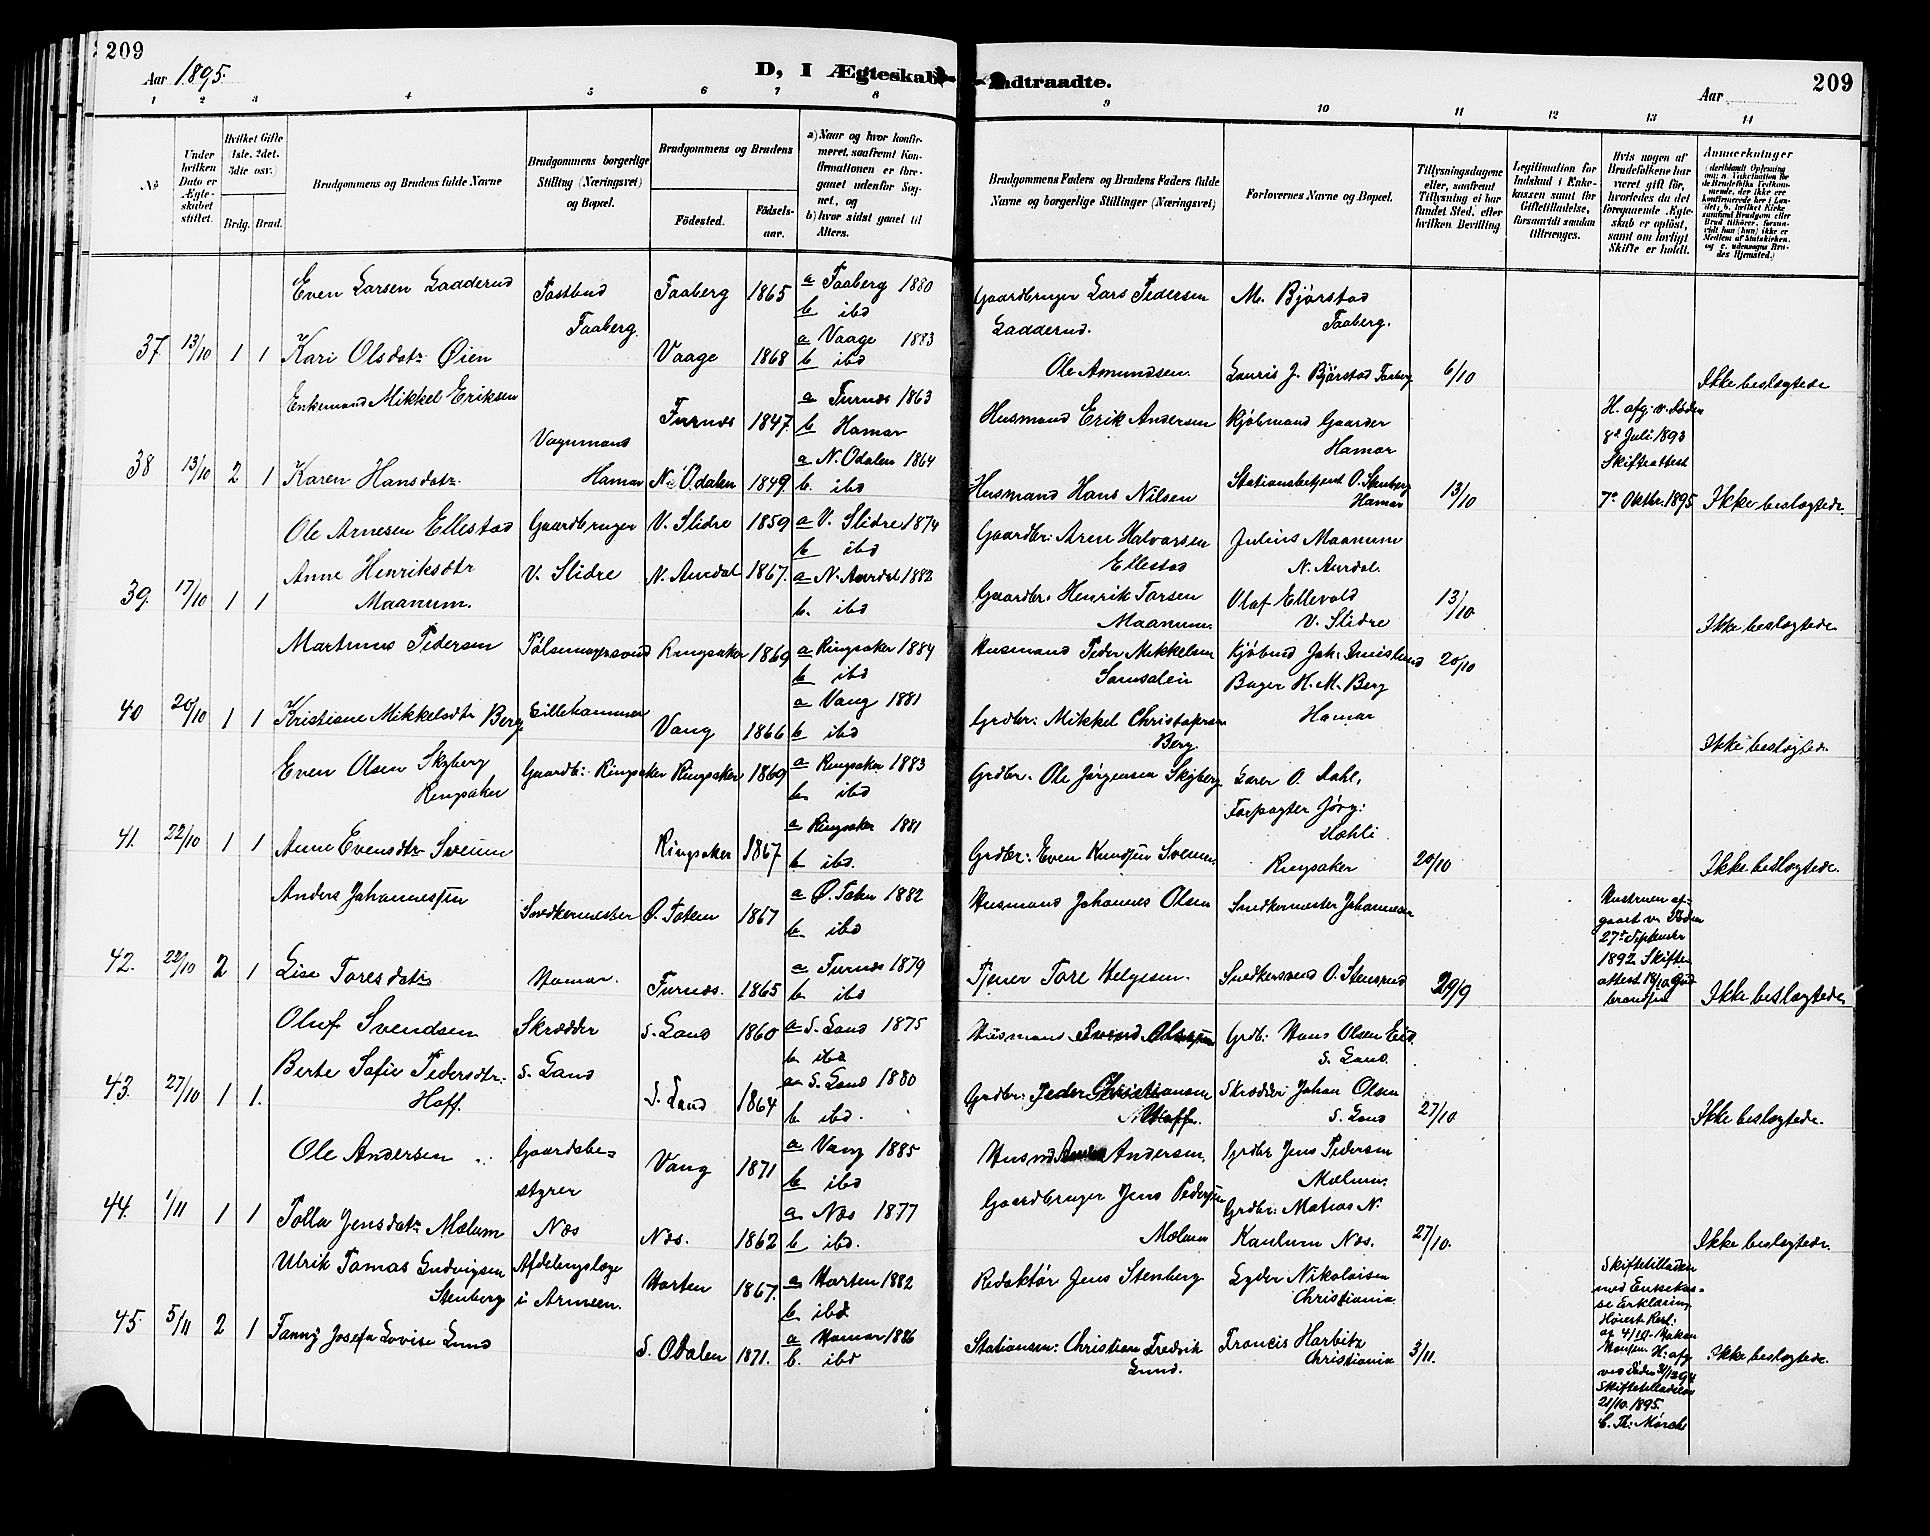 209
Aar 1895.
D, I Ægteskab
Indtraadte.
Aar
209
1 2 3 4 5 6 7 8 9 10 11 12 13 14
No
Under hvilken Dato er Ægteskabet stiftet.
Hvilket Gifte (1ste. 2det. 3die osv.)
Brdg. Brud.
Brudgommens og Brudens fulde Navne
Brudgommens borgerlige Stilling (Næringsvei) og Bopæl.
Brudgommens og Brudens
Födested.
Födselsaar.
a) Naar og hvor konfirmeret, saafremt Konfirmationen er foregaaet udenfor Sognet, og
b) hvor sidst gaaet til Alters.
Brudgommens Faders og Brudens Faders fulde Navne og borgerlige Stillinger (Næringsvei)
Forlovernes Navne og Bopæl.
Tillysningsdagene eller, saafremt Tillysning ei har fundet Sted, efter hvilken Bevilling
Legitimation for Indskud i Enkekassen samt for Giftetilladelse, forsaavidt saadan tiltrænges.
Hvis nogen af Brudefolkene har været gift för, hvorledes da det foregaaende Ægteskab er oplöst, samt om lovligt Skifte er holdt.
Anmerkninger
Even Larsen Ladderud Postbud Faaberg 1865 a Faaberg 1880 Gaardbruger Lars Pedersen M. Bjørstad
Faaberg. b ibd Ladderud. Faaberg.
37 13/10 1 1 Kari Olsdatr Øien Vaage 1868 a Vaage 1883
b ibd Ole Amundsen. Lauris J. Bjørstad Faaberg 6/10 Ikke beslægtede
Enkemand Mikkel Eriksen Furnes 1847. a Furnes 1863 Husmand Erik Andersen Kjøbmand Gaarder H. afg. v. Døden
Vognmand b Hamar Hamar 8d Juli 1893
38 13/10 2 1 Karen Hansdatr. Hamar N. Odalen 1849. a N. Odalen 1864 Stationsbetjent O. Stenberg Skifteattest
b. ibd Husmand Hans Nilsen Hamar 13/10 7de Oktbr. 1895 Ikke beslægtede.
Ole Arnesen Ellestad Gaardbruger V. Slidre 1859 a V. Slidre 1874 Gaardbr: Arne Halvorsen Julius Maanum
b ibd Ellestad N. Aurdal.
Anne Henriksdtr V. Slidre N. Aurdal 1867. a N. Aurdal 1882 Gaardbr. Henrik Torsen Olaf Ellevold
39. 17/10 1 1 Maanum. b. ibd Maanum. V. Slidre 13/10 Ikke beslægtede
Martinus Pedersen Pølsemagersvend Ringsaker 1869 a Ringsaker 1884 Husmand Peder Mikkelsen 20/10
b ibd Bager H. M. Berg
40 20/10 1 1 Kristiane Mikkelsdtr Berg Lillehammer Vang 1866 a Vang 1881 Grdbr: Mikkel Christophersen Hamar
b ibd Berg. Ikke beslægtede.
Even Olsen Skyberg Gaardb: Ringsaker Ringsaker 1869 a Ringsaker 1883 Grdbr. Ole Jørgensen Skyberg O. Dahl,
Ringsaker b. ibd Forpagter Jørg:
Hæhli
41. 22/10 1 1 Anne Evensdtr Sveum Ringsaker 1867 a Ringsaker 1881
b ibd. Grdbr: Even Knudsen Sveum. Ringsaker 20/10 Ikke beslægtede.
Anders Johannessen Snedkermester Ø. Toten 1867 a Ø. Toten 1882 Husmand Johannes Olsen Snedkermester Johannesen Hustruen af-
b. ibd gaaet v. Døden
27de September
42. 22/10 2 1 Lise Toresdatr Hamar. Furnes. 1865 a Furnes 1879 Tjener Tore Helgesen. Snedkersvend O. Stensrud 29/9 1892. Skifte-
b. ibd attest 18/10 Gud-
brandsen Ikke beslægtede
Oluf Svendsen Skrædder S. Land 1860 a S. Land 1875 Husmand Svend Grdb: Hans Olsen Eid
b. ibd S. Land.
43. 27/10 1 1. Berte Sofie Pedersdtr. S. Land S. Land 1864 a S. Land 1880 Grdbr: Peder Christiansen Skrædder Johan Olsen
Hoff. b. ibd. Hoff. S. Land 27/10 Ikke beslægtede.
Ole Andersen Gaardsbe= Vang 1871 a Vang 1885 Andersen. Grdbr Jens Pedersen
styrer b ibd Mælum.
44. 1/11 1 1 Tolla Jensdatr Mælum Næs Næs. 1862 a. Næs 1877 Gaardbruger Jens Pedersen Grdbr: Matias N.
b. ibd. Mælum Kaulum Næs. 27/10. Ikke beslægtede.
Ulrik Tomas Ludvigsen Afdelingslæge Horten 1867. a Horten 1882 Redaktør Jens Stenberg Lyder Nikolaisen Skiftetilladelse
Stenberg i Armeen. b ibd Christiania med Enkekas-
se Erklæring
45. 5/11 2 1 Fanny Josefa Lovise Lund S. Odalen 1871. a Hamar 1886 Stationsm: Christian Fredrik Francis Harbitz 3/11. af 4/10 Ikke beslægtede.
b. ibd Lund. Christiania
Skiftetilladelse
21/10. 1895.
C. Th. Mørch